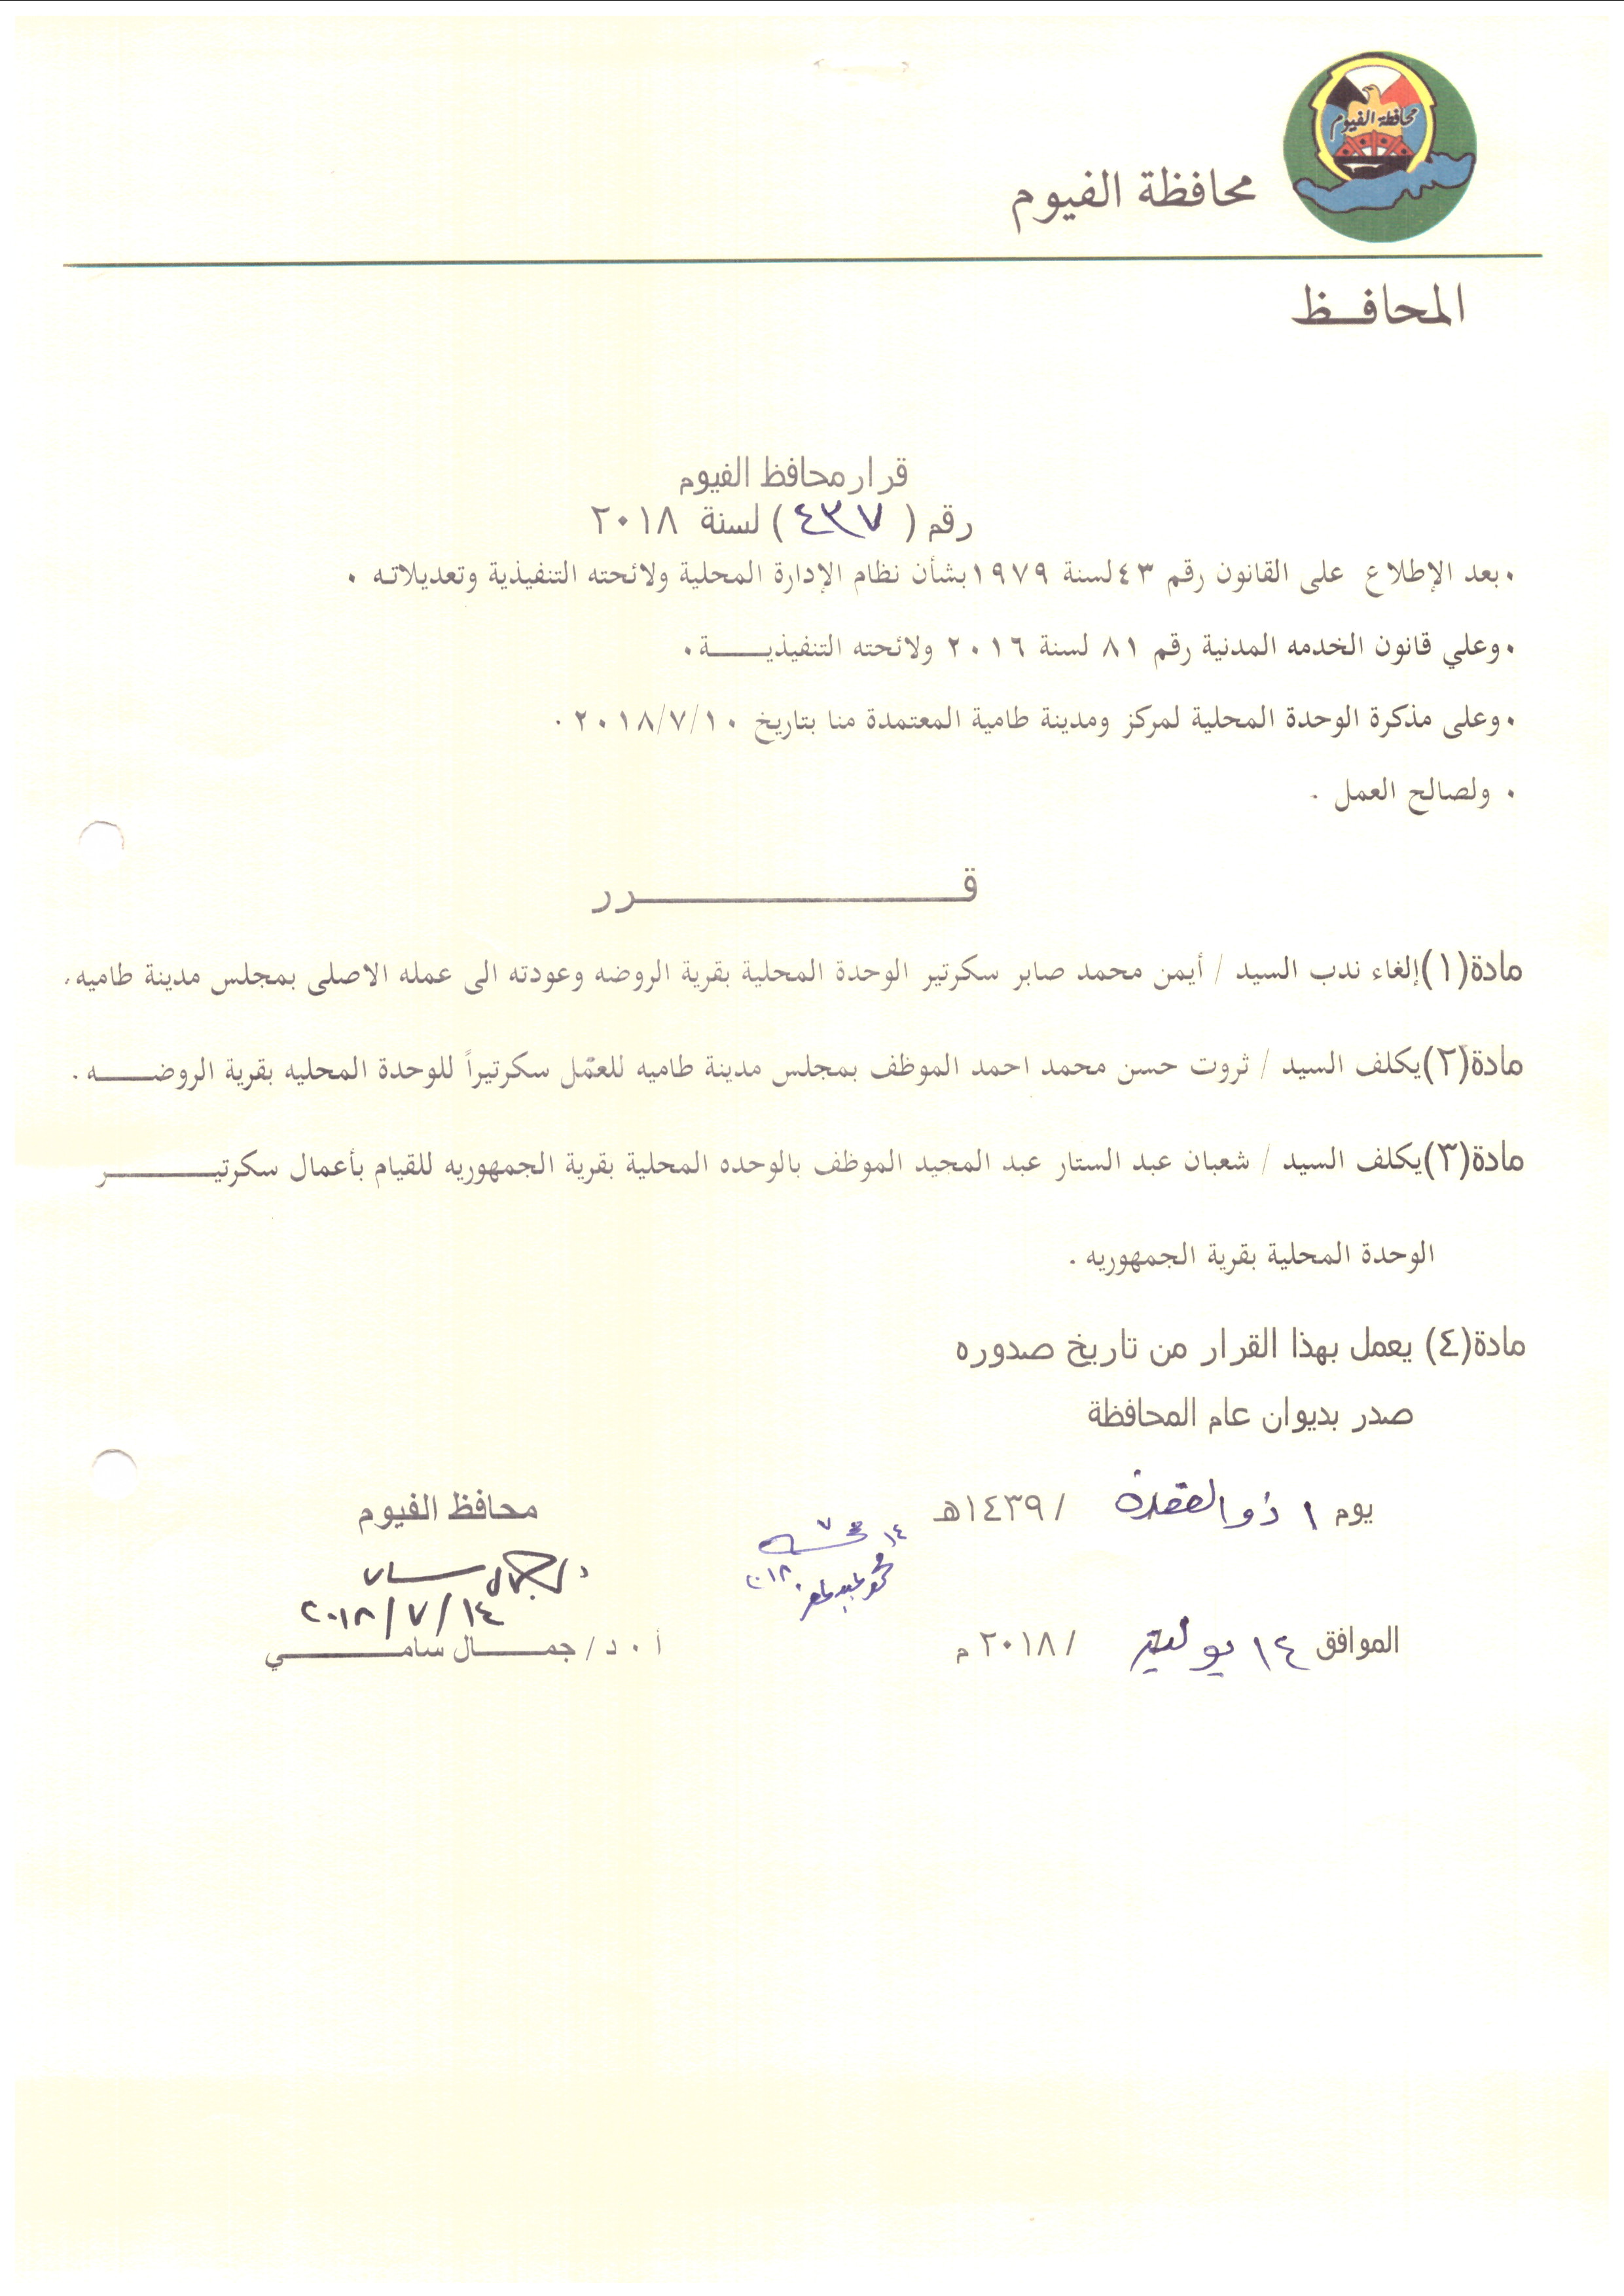 محافظة الفيوم
محافظة الفيوم
المحافــظ
قرار محافظ الفيوم
رقم ( ٤٣٧ ) لسنة ٢٠١٨
• بعد الإطلاع على القانون رقم ٤٣ لسنة ١٩٧٩ بشأن نظام الإدارة المحلية ولائحته التنفيذية وتعديلاتـه .
• وعلي قانون الخدمه المدنية رقم ٨١ لسنة ٢٠١٦ ولائحته التنفيذيـــــة .
• وعلى مذكرة الوحدة المحلية لمركز ومدينة طامية المعتمدة منا بتاريخ ٢٠١٨/٧/١٠ .
• ولصالح العمل .
قــــــــــــــــــرر
مادة(١)إلغاء ندب السيد / أيمن محمد صابر سكرتير الوحدة المحلية بقرية الروضه وعودته الى عمله الاصلى بمجلس مدينة طاميه.
مادة(٢)يكلف السيد / ثروت حسن محمد احمد الموظف بمجلس مدينة طاميه للعمل سكرتيراً للوحدة المحليه بقرية الروضـــــه .
مادة(٣)يكلف السيد / شعبان عبد الستار عبد المجيد الموظف بالوحده المحلية بقرية الجمهوريه للقيام بأعمال سكرتيــــــــــر
الوحدة المحلية بقرية الجمهوريه .
مادة(٤) يعمل بهذا القرار من تاريخ صدوره
صدر بديوان عام المحافظة
يوم ١ ذو القعدة / ١٤٣٩هـ
الموافق ١٤ يوليه / ٢٠١٨ م
١٤
٧
٢٠١٨
محافظ الفيوم
٢٠١٨/٧/١٤
أ . د / جمـــــــال سامــــــــــــي